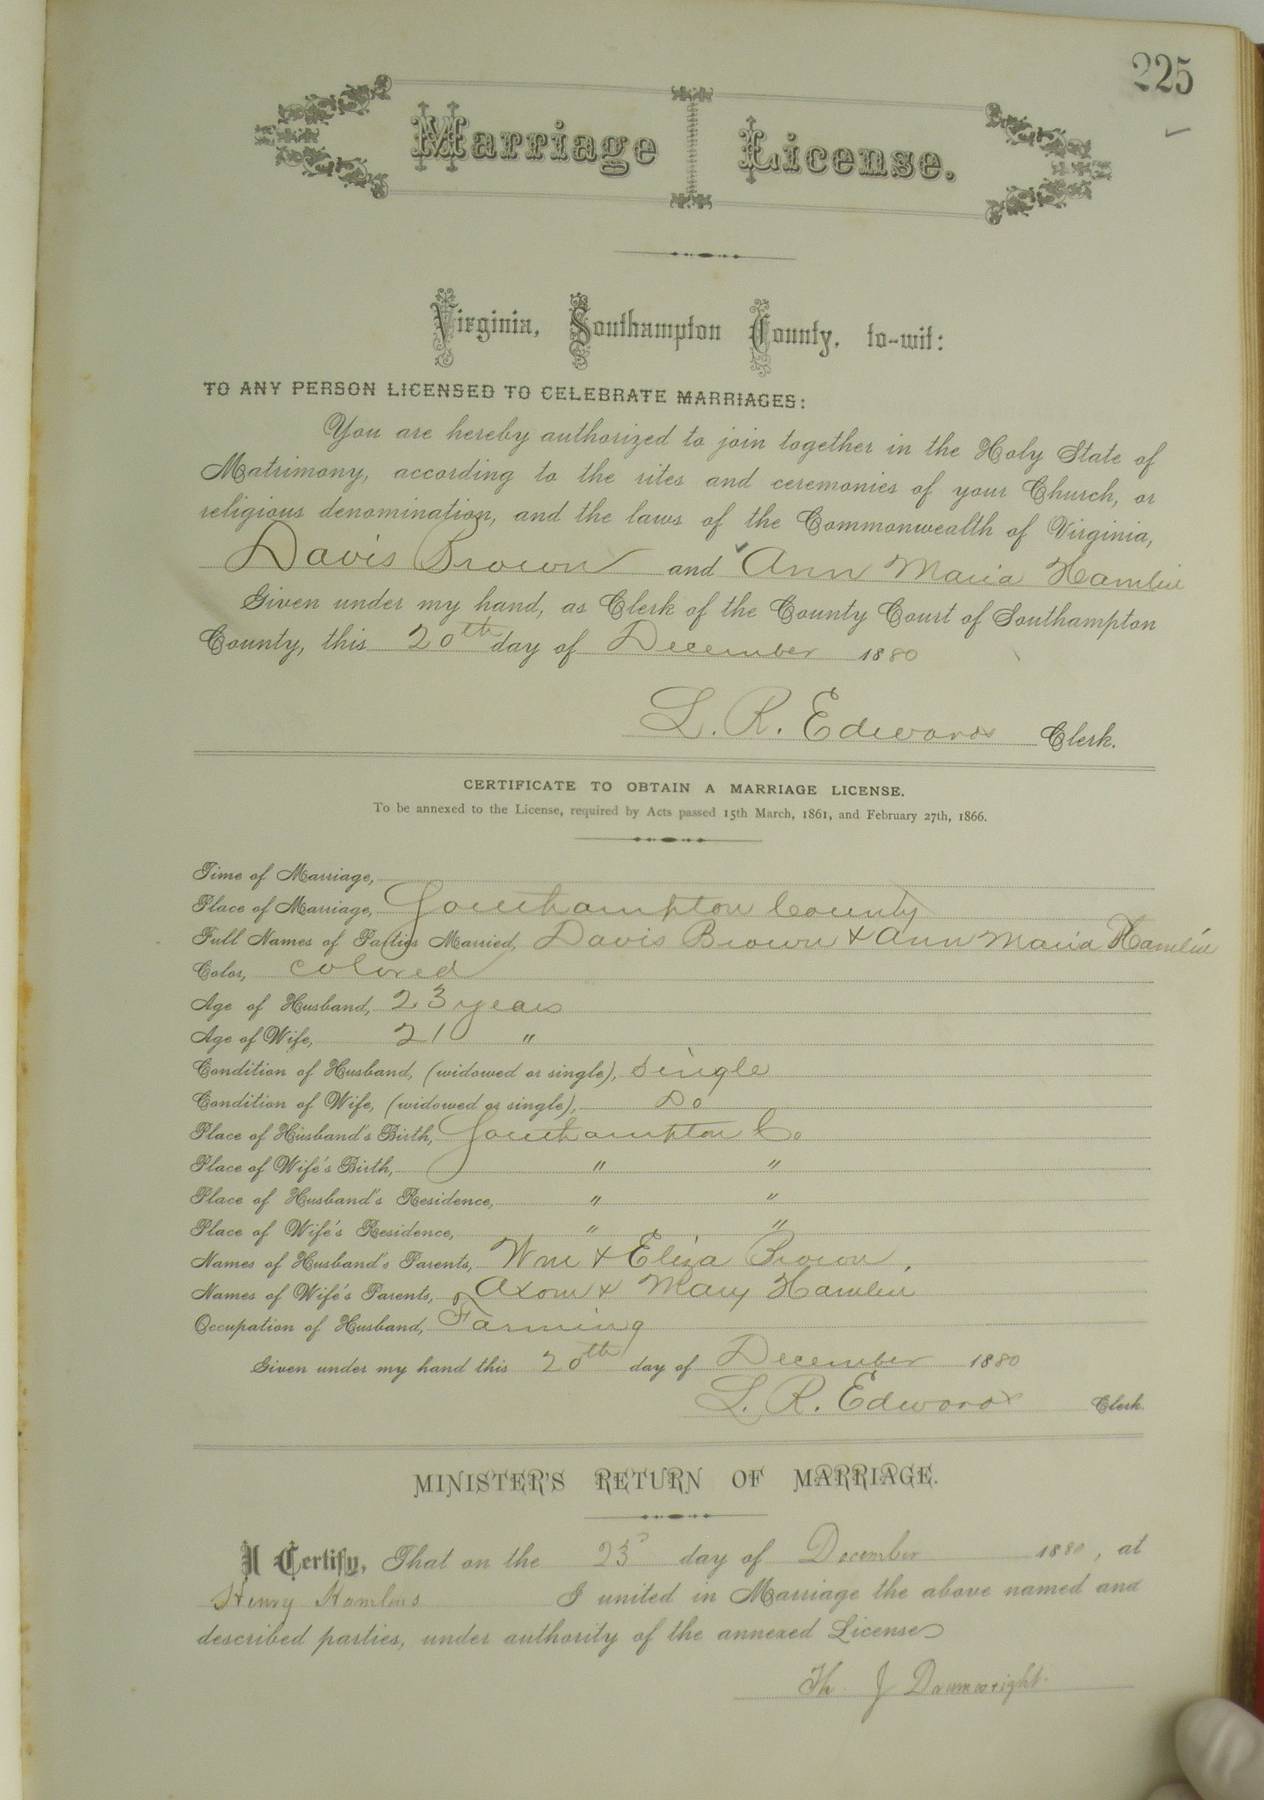 225
Marriage License.
Virginia, Southampton County, to-wit:
TO ANY PERSON LICENSED TO CELEBRATE MARRIAGES:
You are hereby authorized to join together in the Holy State of
Matrimony, according to the rites and ceremonies of your Church, or
religious denomination, and the laws of the Commonwealth of Virginia,
Davis Brown and Ann Maria Hamlin
Given under my hand, as Clerk of the County Court of Southampton
County, this 20th day of December 1880
L. R. Edwards Clerk.
CERTIFICATE TO OBTAIN A MARRIAGE LICENSE.
To be annexed to the License, required by Acts passed 15th March, 1861, and February 27th, 1866.
Time of Marriage,
Place of Marriage, Southampton County
Full Names of Parties Married, Davis Brown & Ann Maria Hamlin
Color, colored
Age of Husband, 23 years
Age of Wife, 21 "
Condition of Husband, (widowed or single), single
Condition of Wife, (widowed or single), Do
Place of Husband's Birth, Southampton Co
Place of Wife's Birth, " "
Place of Husband's Residence, " "
Place of Wife's Residence, " "
Names of Husband's Parents, Wm & Eliza Brown,
Names of Wife's Parents, Axom & Mary Hamlin
Occupation of Husband, Farming
Given under my hand this 20th day of December 1880
L. R. Edwards Clerk.
MINISTER'S RETURN OF MARRIAGE.
I Certify, That on the 23d day of December 1880, at
Henry Hamlins I united in Marriage the above named and
described parties, under authority of the annexed License
Th. J Drumwright.